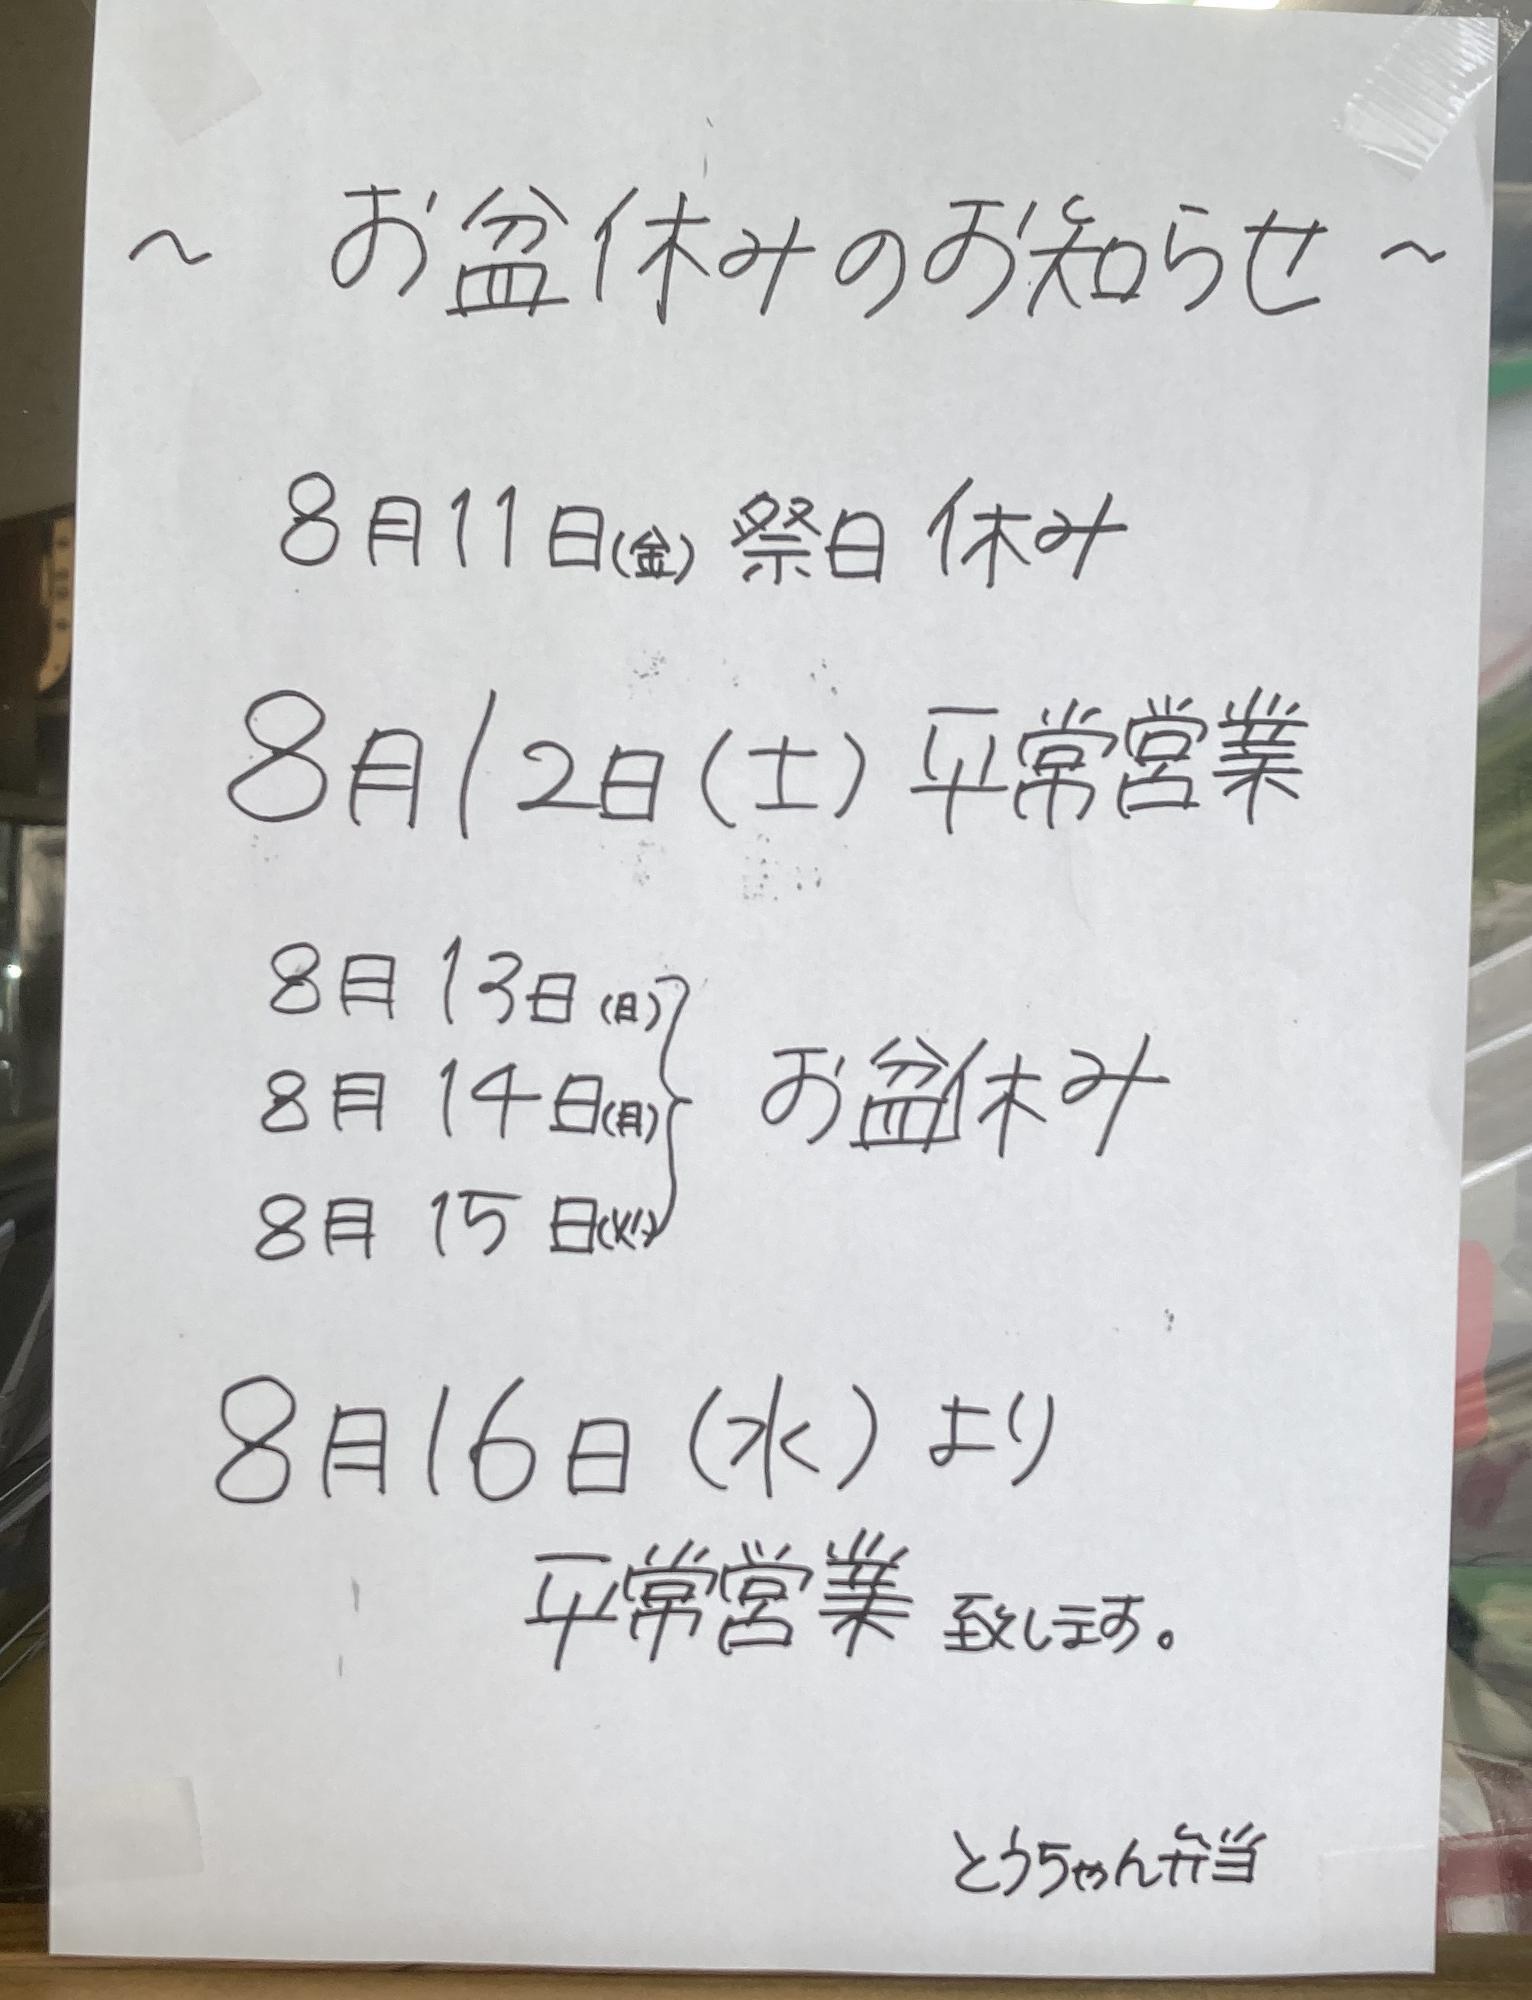 ～ お盆休みのお知らせ ～
8月11日(金) 祭日 休み
8月12日(土) 平常営業
8月13日(日)
8月14日(月)
お盆休み
8月15日(火)
8月16日(水)より
平常営業 致します。
とうちゃん弁当